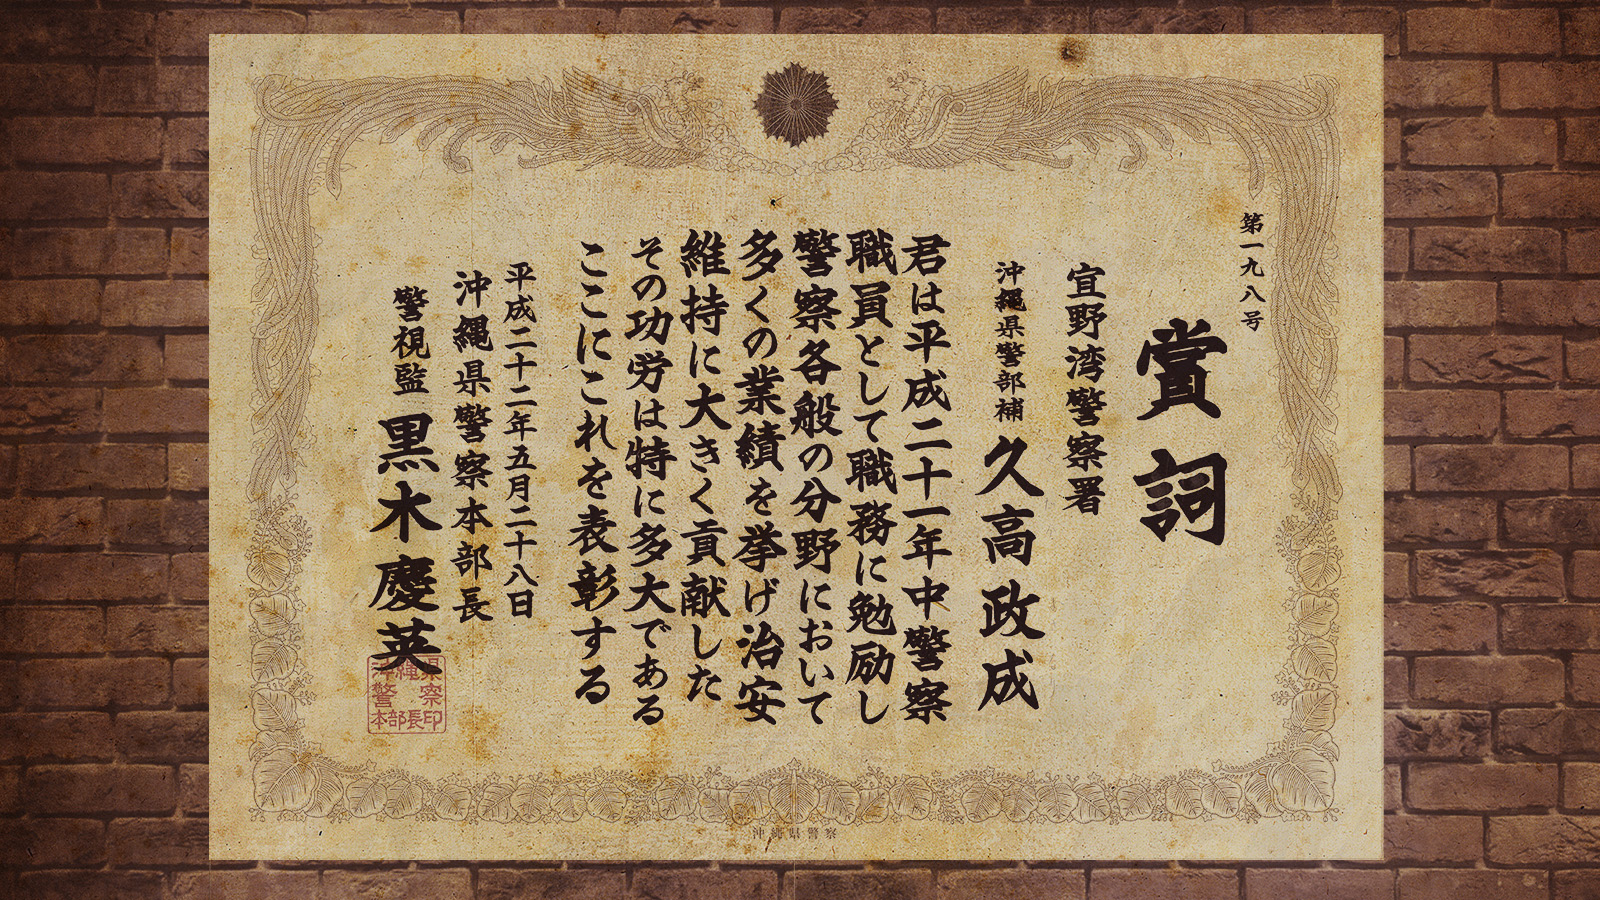 第一九八号
賞詞
宜野湾警察署
沖縄県警部補 久高政成
君は平成二十一年中警察
職員として職務に勉励し
警察各般の分野において
多くの業績を挙げ治安
維持に大きく貢献した
その功労は特に多大である
ここにこれを表彰する
平成二十二年五月二十八日
沖縄県警察本部長
警視監 黒木慶英
沖縄県
警察
本部長印
沖縄県警察